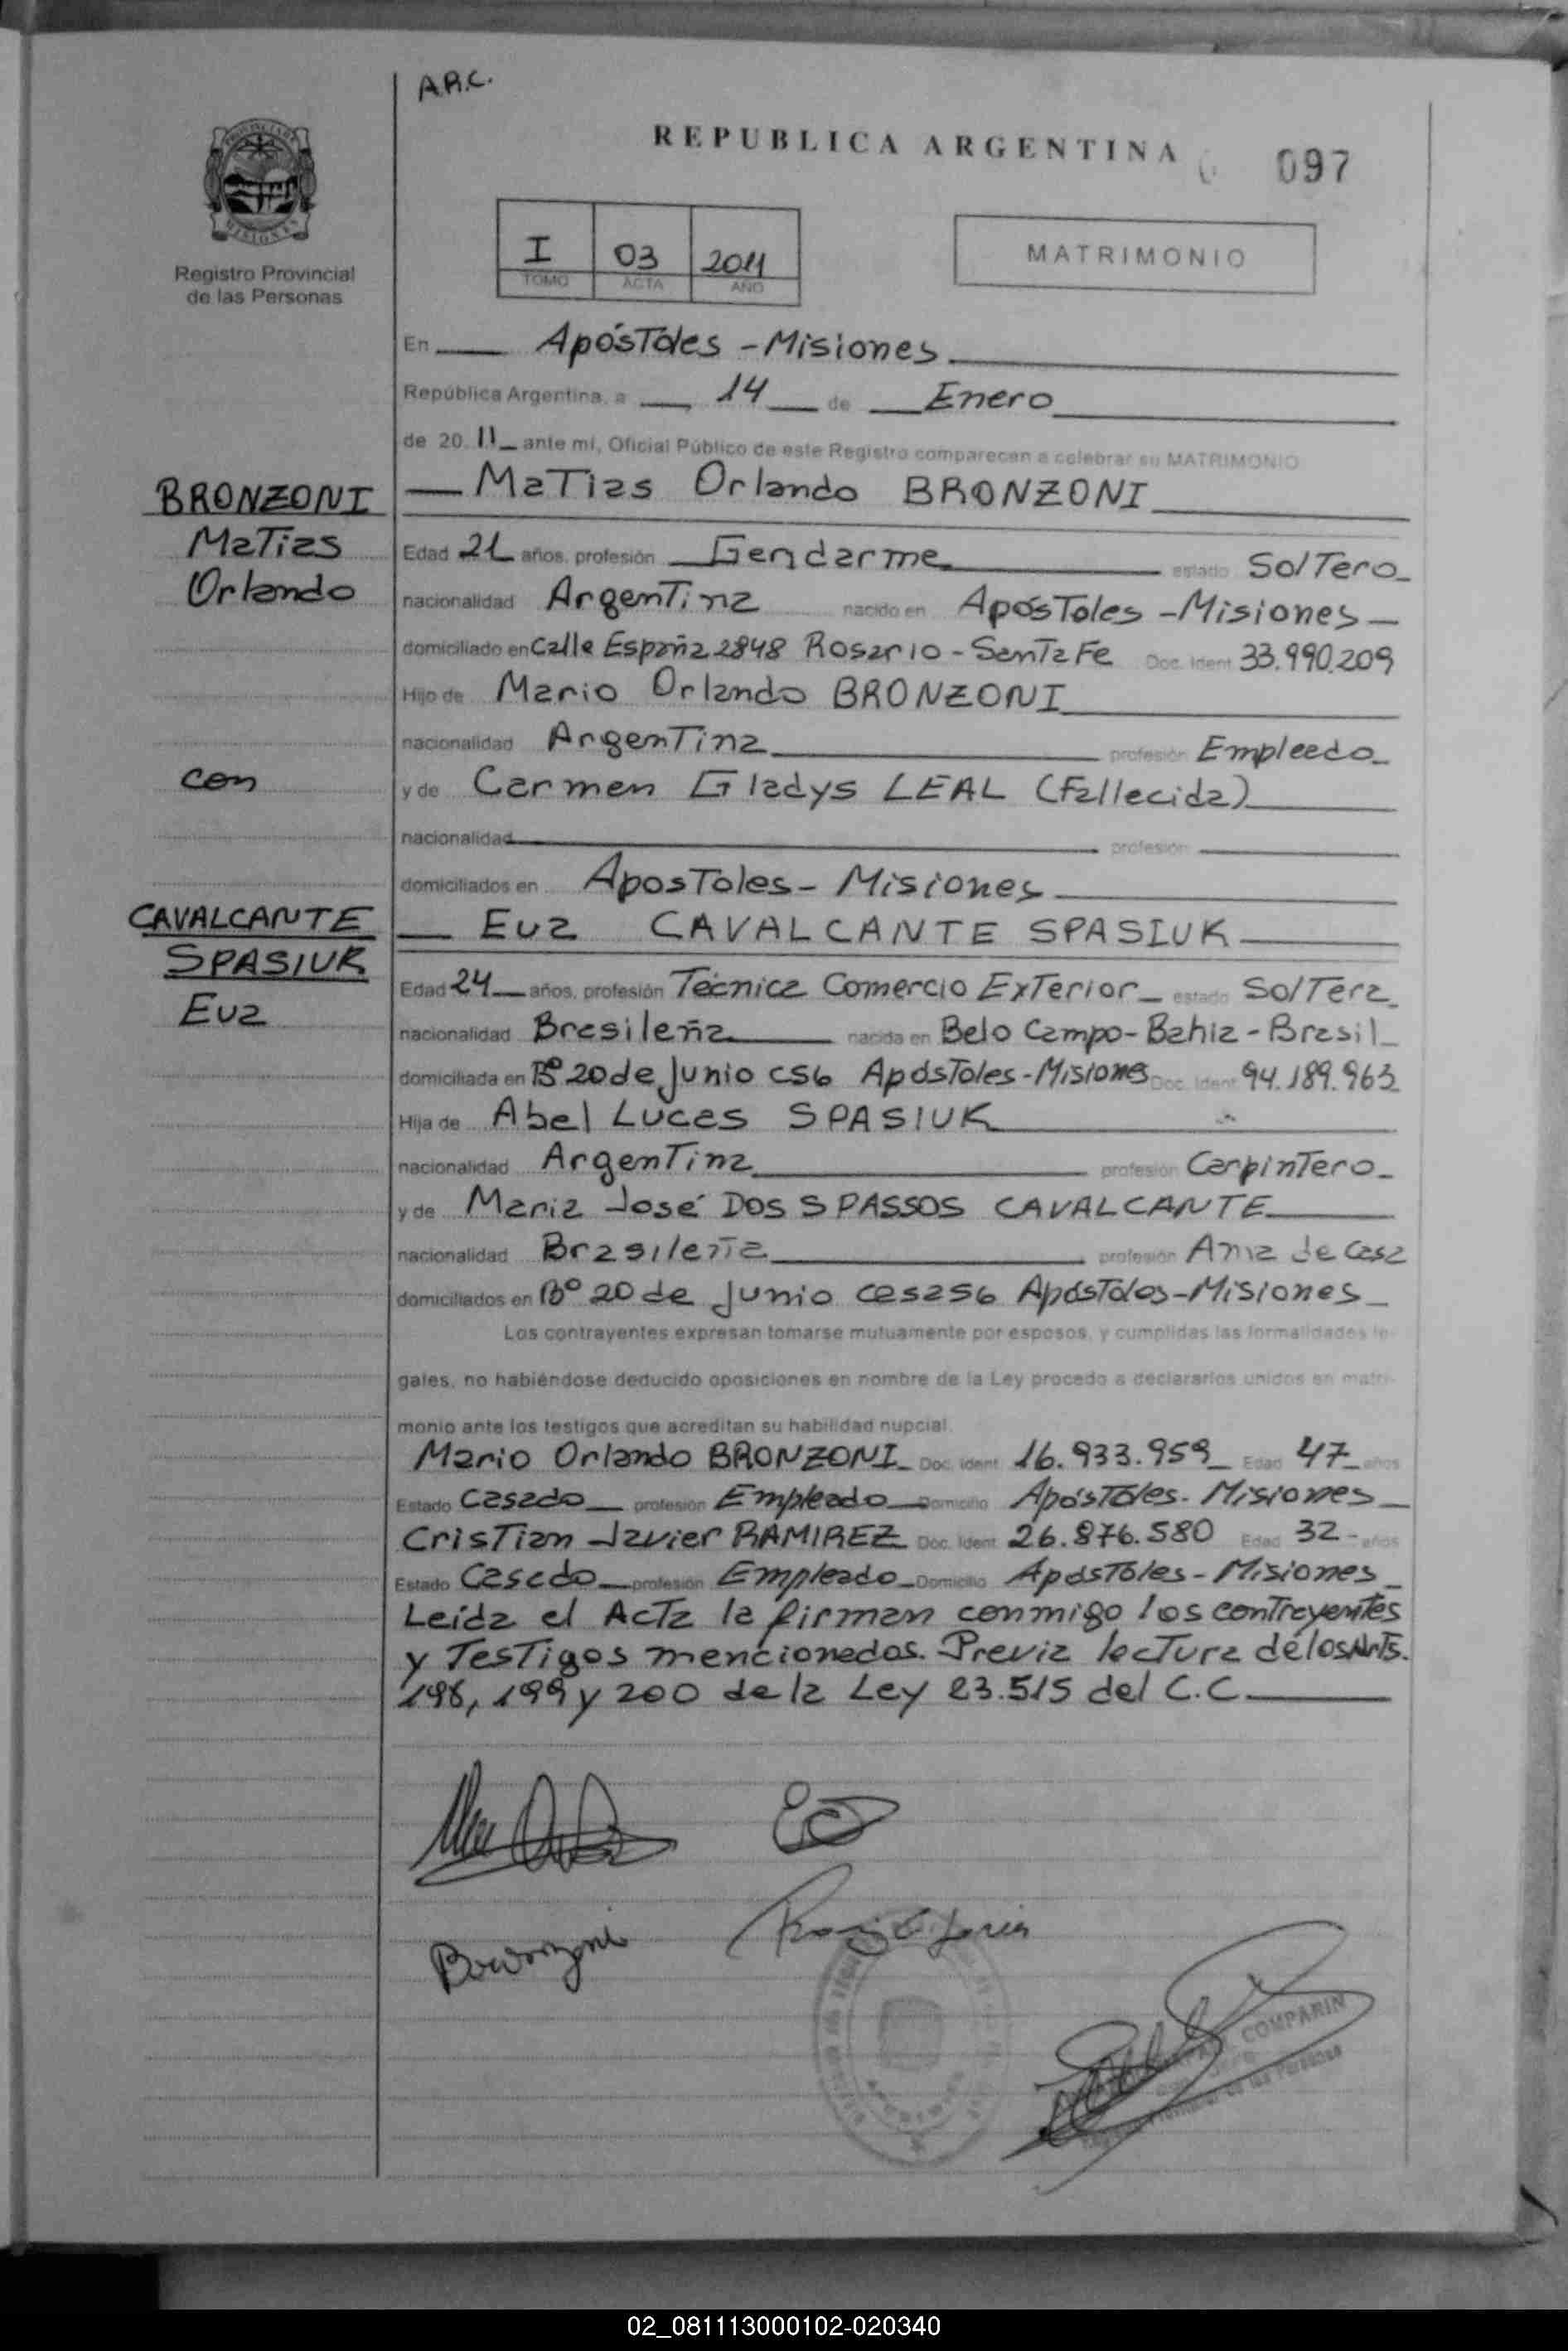 A.R.C.
REPUBLICA ARGENTINA
097
PROVINCIA DE
MISIONES
Registro Provincial
de las Personas
I 03 2011
TOMO ACTA AÑO
MATRIMONIO
En Apóstoles - Misiones
República Argentina, a 14 de Enero
de 20 11 ante mí, Oficial Público de este Registro comparecen a celebrar su MATRIMONIO
BRONZONI
Matias
Orlando
con
CAVALCANTE
SPASIUK
Eva
Matias Orlando BRONZONI
Edad 21 años, profesión Gendarme estado Soltero
nacionalidad Argentina nacido en Apóstoles - Misiones
domiciliado en Calle España 2848 Rosario - Santa Fe Doc. Ident 33.990.209
Hijo de Mario Orlando BRONZONI
nacionalidad Argentina profesión Empleado
y de Carmen Gladys LEAL (Fallecida)
nacionalidad profesión
domiciliados en Apostoles - Misiones
Eva CAVALCANTE SPASIUK
Edad 24 años, profesión Técnica Comercio Exterior estado Soltera
nacionalidad Brasileña nacida en Belo Campo - Bahia - Brasil
domiciliada en Bº 20 de Junio CS6 Apóstoles - Misiones Doc. Ident 94.189.963
Hija de Abel Lucas SPASIUK
nacionalidad Argentina profesión Carpintero
y de Maria José DOS S PASSOS CAVALCANTE
nacionalidad Brasileña profesión Ama de Casa
domiciliados en Bº 20 de Junio casa 56 Apóstoles - Misiones
Los contrayentes expresan tomarse mutuamente por esposos, y cumplidas las formalidades le-
gales, no habiéndose deducido oposiciones en nombre de la Ley procedo a declararlos unidos en matri-
monio ante los testigos que acreditan su habilidad nupcial.
Mario Orlando BRONZONI Doc. Ident 16.933.959 Edad 47 años
Estado Casado profesión Empleado Domicilio Apóstoles - Misiones
Cristian Javier RAMIREZ Doc. Ident 26.876.580 Edad 32 años
Estado Casado profesión Empleado Domicilio Apóstoles - Misiones
Leida el Acta la firman conmigo los contrayentes
y Testigos mencionados. Previa lectura de los Arts.
198, 199 y 200 de la Ley 23.515 del C.C.
COMPARIN
de las Personas
02_081113000102-020340